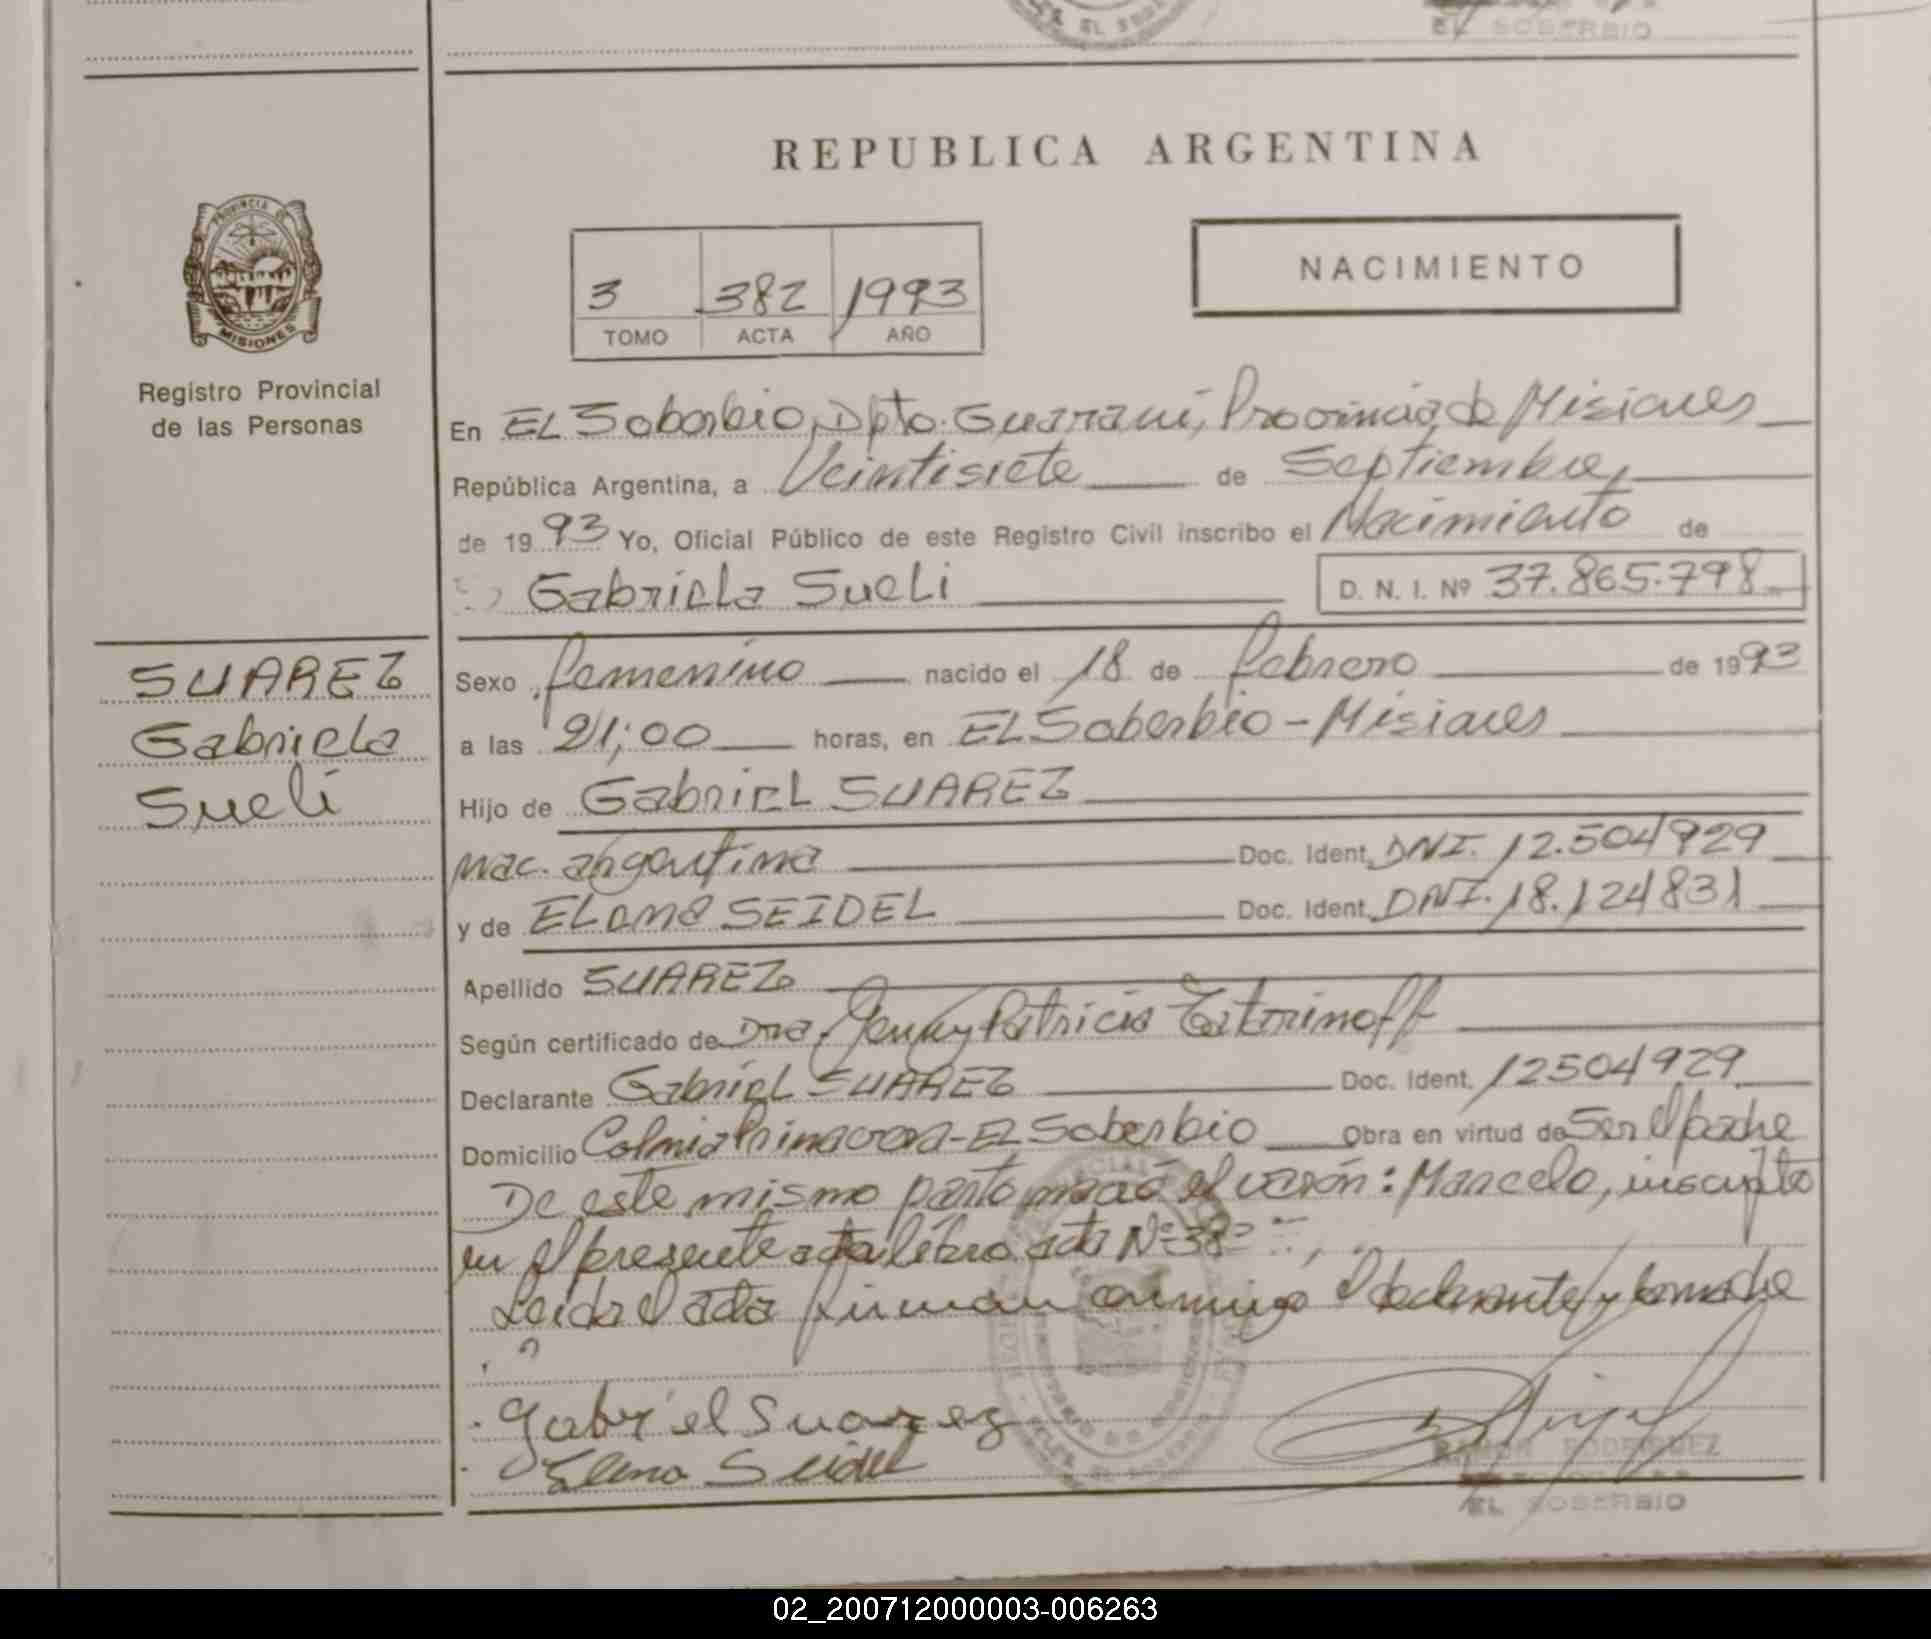 EL SOBERBIO
REPUBLICA ARGENTINA
PROVINCIA DE
MISIONES
Registro Provincial
de las Personas
3 382 1993
TOMO ACTA AÑO
NACIMIENTO
En EL Soberbio, Dpto. Guarani, Provincia de Misiones
República Argentina, a Veintisiete de Septiembre,
de 1993 Yo, Oficial Público de este Registro Civil inscribo el Nacimiento de
Gabriela Sueli D. N. I. Nº 37.865.798
SUAREZ
Gabriela
Sueli
Sexo femenino nacido el 18 de febrero de 1993
a las 21;00 horas, en EL Soberbio - Misiones
Hijo de Gabriel SUAREZ
nac. argentina Doc. Ident. DNI. 12.504929
y de ELENA SEIDEL Doc. Ident. DNI. 18.124831
Apellido SUAREZ
Según certificado de Dra. Jenny Patricia
Declarante Gabriel SUAREZ Doc. Ident. 12504929
Domicilio Colonia Primavera - EL Soberbio Obra en virtud de Ser el padre
De este mismo parto nació el varón: Marcelo, inscripto
en el presente libro acta Nº 38
Leida el acta firman conmigo el declarante y la madre
Gabriel Suarez
Elena Seidel
RAMON RODRIGUEZ
EL SOBERBIO
02_200712000003-006263